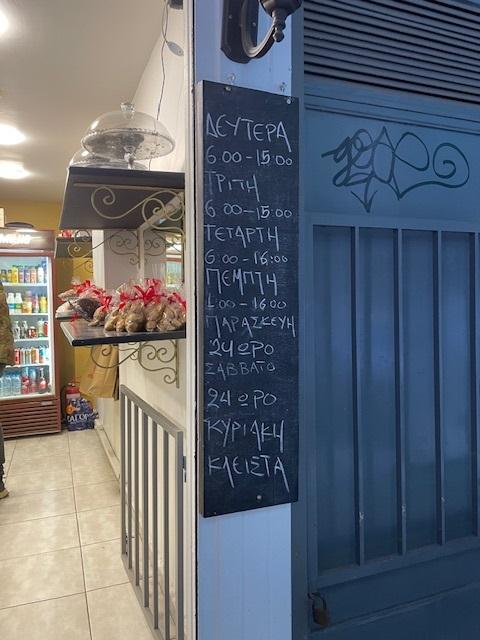 ΔΕΥΤΕΡΑ
6.00-15:00
ΤΡΙΤΗ
6.00-15:00
ΤΕΤΑΡΤΗ
6.00-16:00
ΠΕΜΠΤΗ
-16:00
ΠΑΡΑΣΚΕΥΗ
24ΩΡΟ
ΣΑΒΒΑΤΟ
24ΩΡΟ
ΚΥΡΙΑΚΗ
ΚΛΕΙΣΤΑ